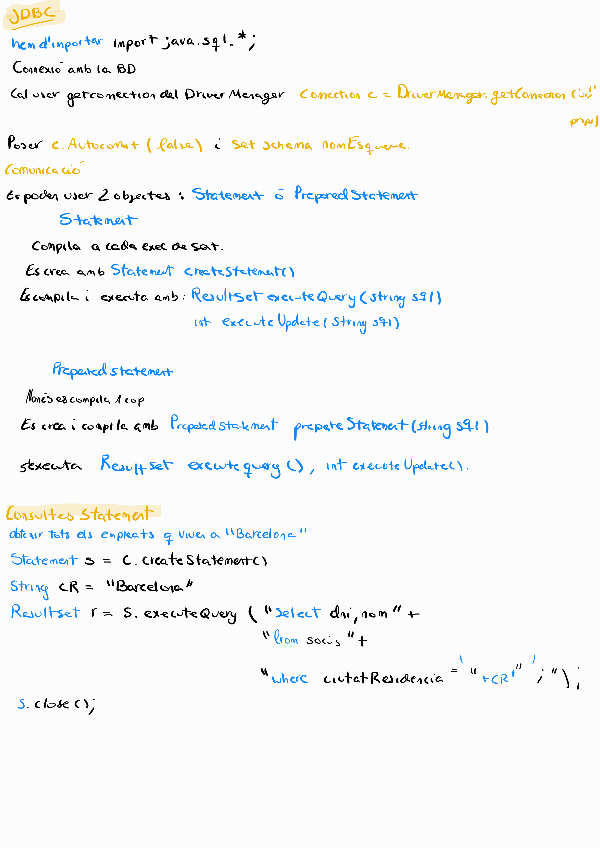 JDBC
hem d'importar import java.sql.*;
Connexió amb la BD
Cal usar getconnection del Driver Manager Connection c = DriverManager.getConnection ("url"
Posar c.Autocommit (false) i set schema nomEsquema.
Comunicació
Es poden usar 2 objectes : Statement o PreparedStatement
Statement
Compila a cada exec de sent.
Es crea amb Statement createStatement()
Es compila i executa amb: ResultSet executeQuery (string sql)
int executeUpdate (String sql)
Prepared statement
Només es compila 1 cop
Es crea i compila amb PreparedStatement prepareStatement (string sql)
s'executa ResultSet executequery (), int executeUpdate().
Consultes Statement
obtenir tots els empleats q viuen a "Barcelona"
Statement s = C.createStatement()
String CR = "Barcelona"
Resultset r = S.executeQuery ( "select dni, nom" +
"from socis" +
"where ciutatResidencia = ' " +CR+ " ' ; " ) ;
S.close();